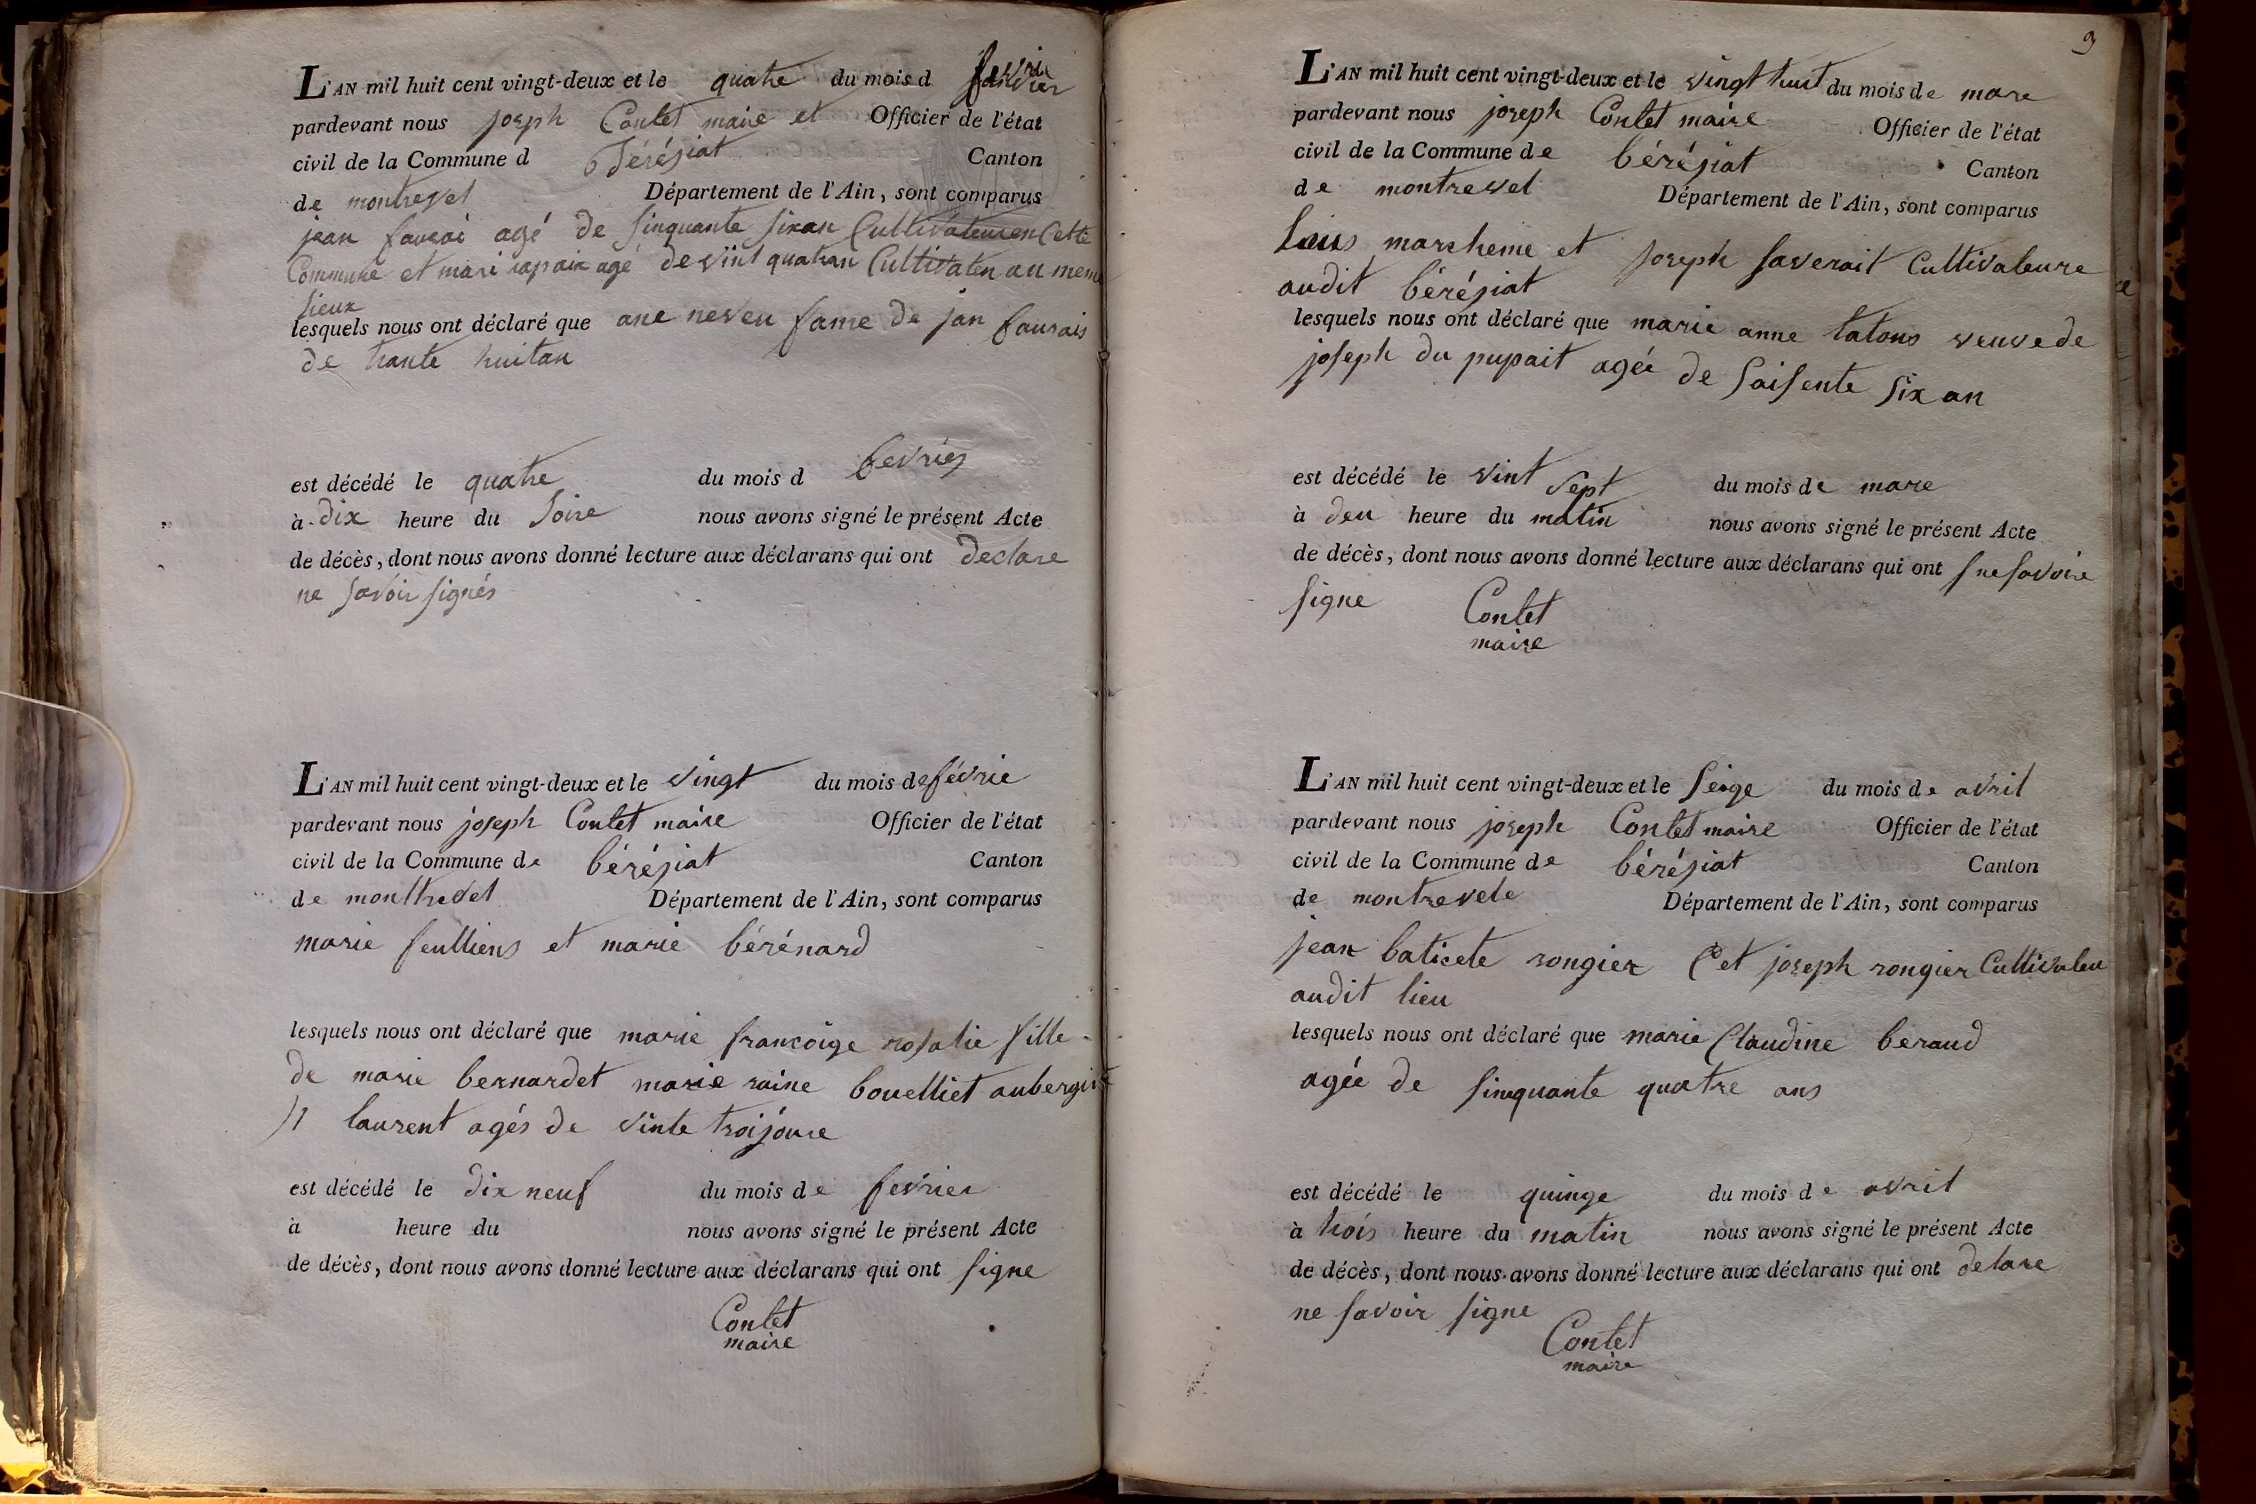 L'AN mil huit cent vingt-deux et le quatre du mois d fevrier
pardevant nous joseph Contet maire et Officier de l'état
civil de la Commune d bérésiat Canton
de montrevel Département de l'Ain, sont comparus
jean fauroi agé de sinquante sixan Cultivateur en Cette
Commune et mari agé de vint quatran Cultivaten au meme
lieux
lesquels nous ont déclaré que ane neveu fame de jan faurais
de trante huitan
est décédé le quatre du mois d fevriés
à dix heure du soire nous avons signé le présent Acte
de décès, dont nous avons donné lecture aux déclarans qui ont declare
ne savoir signés
L'AN mil huit cent vingt-deux et le vingt du mois de févrie
pardevant nous joseph Contet maire Officier de l'état
civil de la Commune de bérésiat Canton
de monttrevel Département de l'Ain, sont comparus
marie feulliens et marie bérénard
lesquels nous ont déclaré que marie francoige rosalie fille
de marie bernardet marie raine bouelliet aubergist
st laurent agés de vinte troijoure
est décédé le dix neuf du mois de fevrier
à heure du nous avons signé le présent Acte
de décès, dont nous avons donné lecture aux déclarans qui ont signe
Contet
maire
9
L'AN mil huit cent vingt-deux et le vingt huit du mois de mare
pardevant nous joseph Contet maire Officier de l'état
civil de la Commune de bérésiat Canton
de montrevel Département de l'Ain, sont comparus
Louis marcheme et joseph saverait Cultivateure
audit bérésiat
lesquels nous ont déclaré que marie anne tatons veuve de
joseph du pupait agée de soisente six an
est décédé le vint sept du mois de mare
à deu heure du matin nous avons signé le présent Acte
de décès, dont nous avons donné lecture aux déclarans qui ont ne savoire
signe Contet
maire
L'AN mil huit cent vingt-deux et le seige du mois de avril
pardevant nous joseph Contet maire Officier de l'état
civil de la Commune de bérésiat Canton
de montrevele Département de l'Ain, sont comparus
jean baticete rongier et joseph rongier Cultivateu
audit lieu
lesquels nous ont déclaré que marie Claudine beraud
agée de sinquante quatre ans
est décédé le quinge du mois de avril
à trois heure du matin nous avons signé le présent Acte
de décès, dont nous avons donné lecture aux déclarans qui ont delare
ne savoir signe
Contet
maire